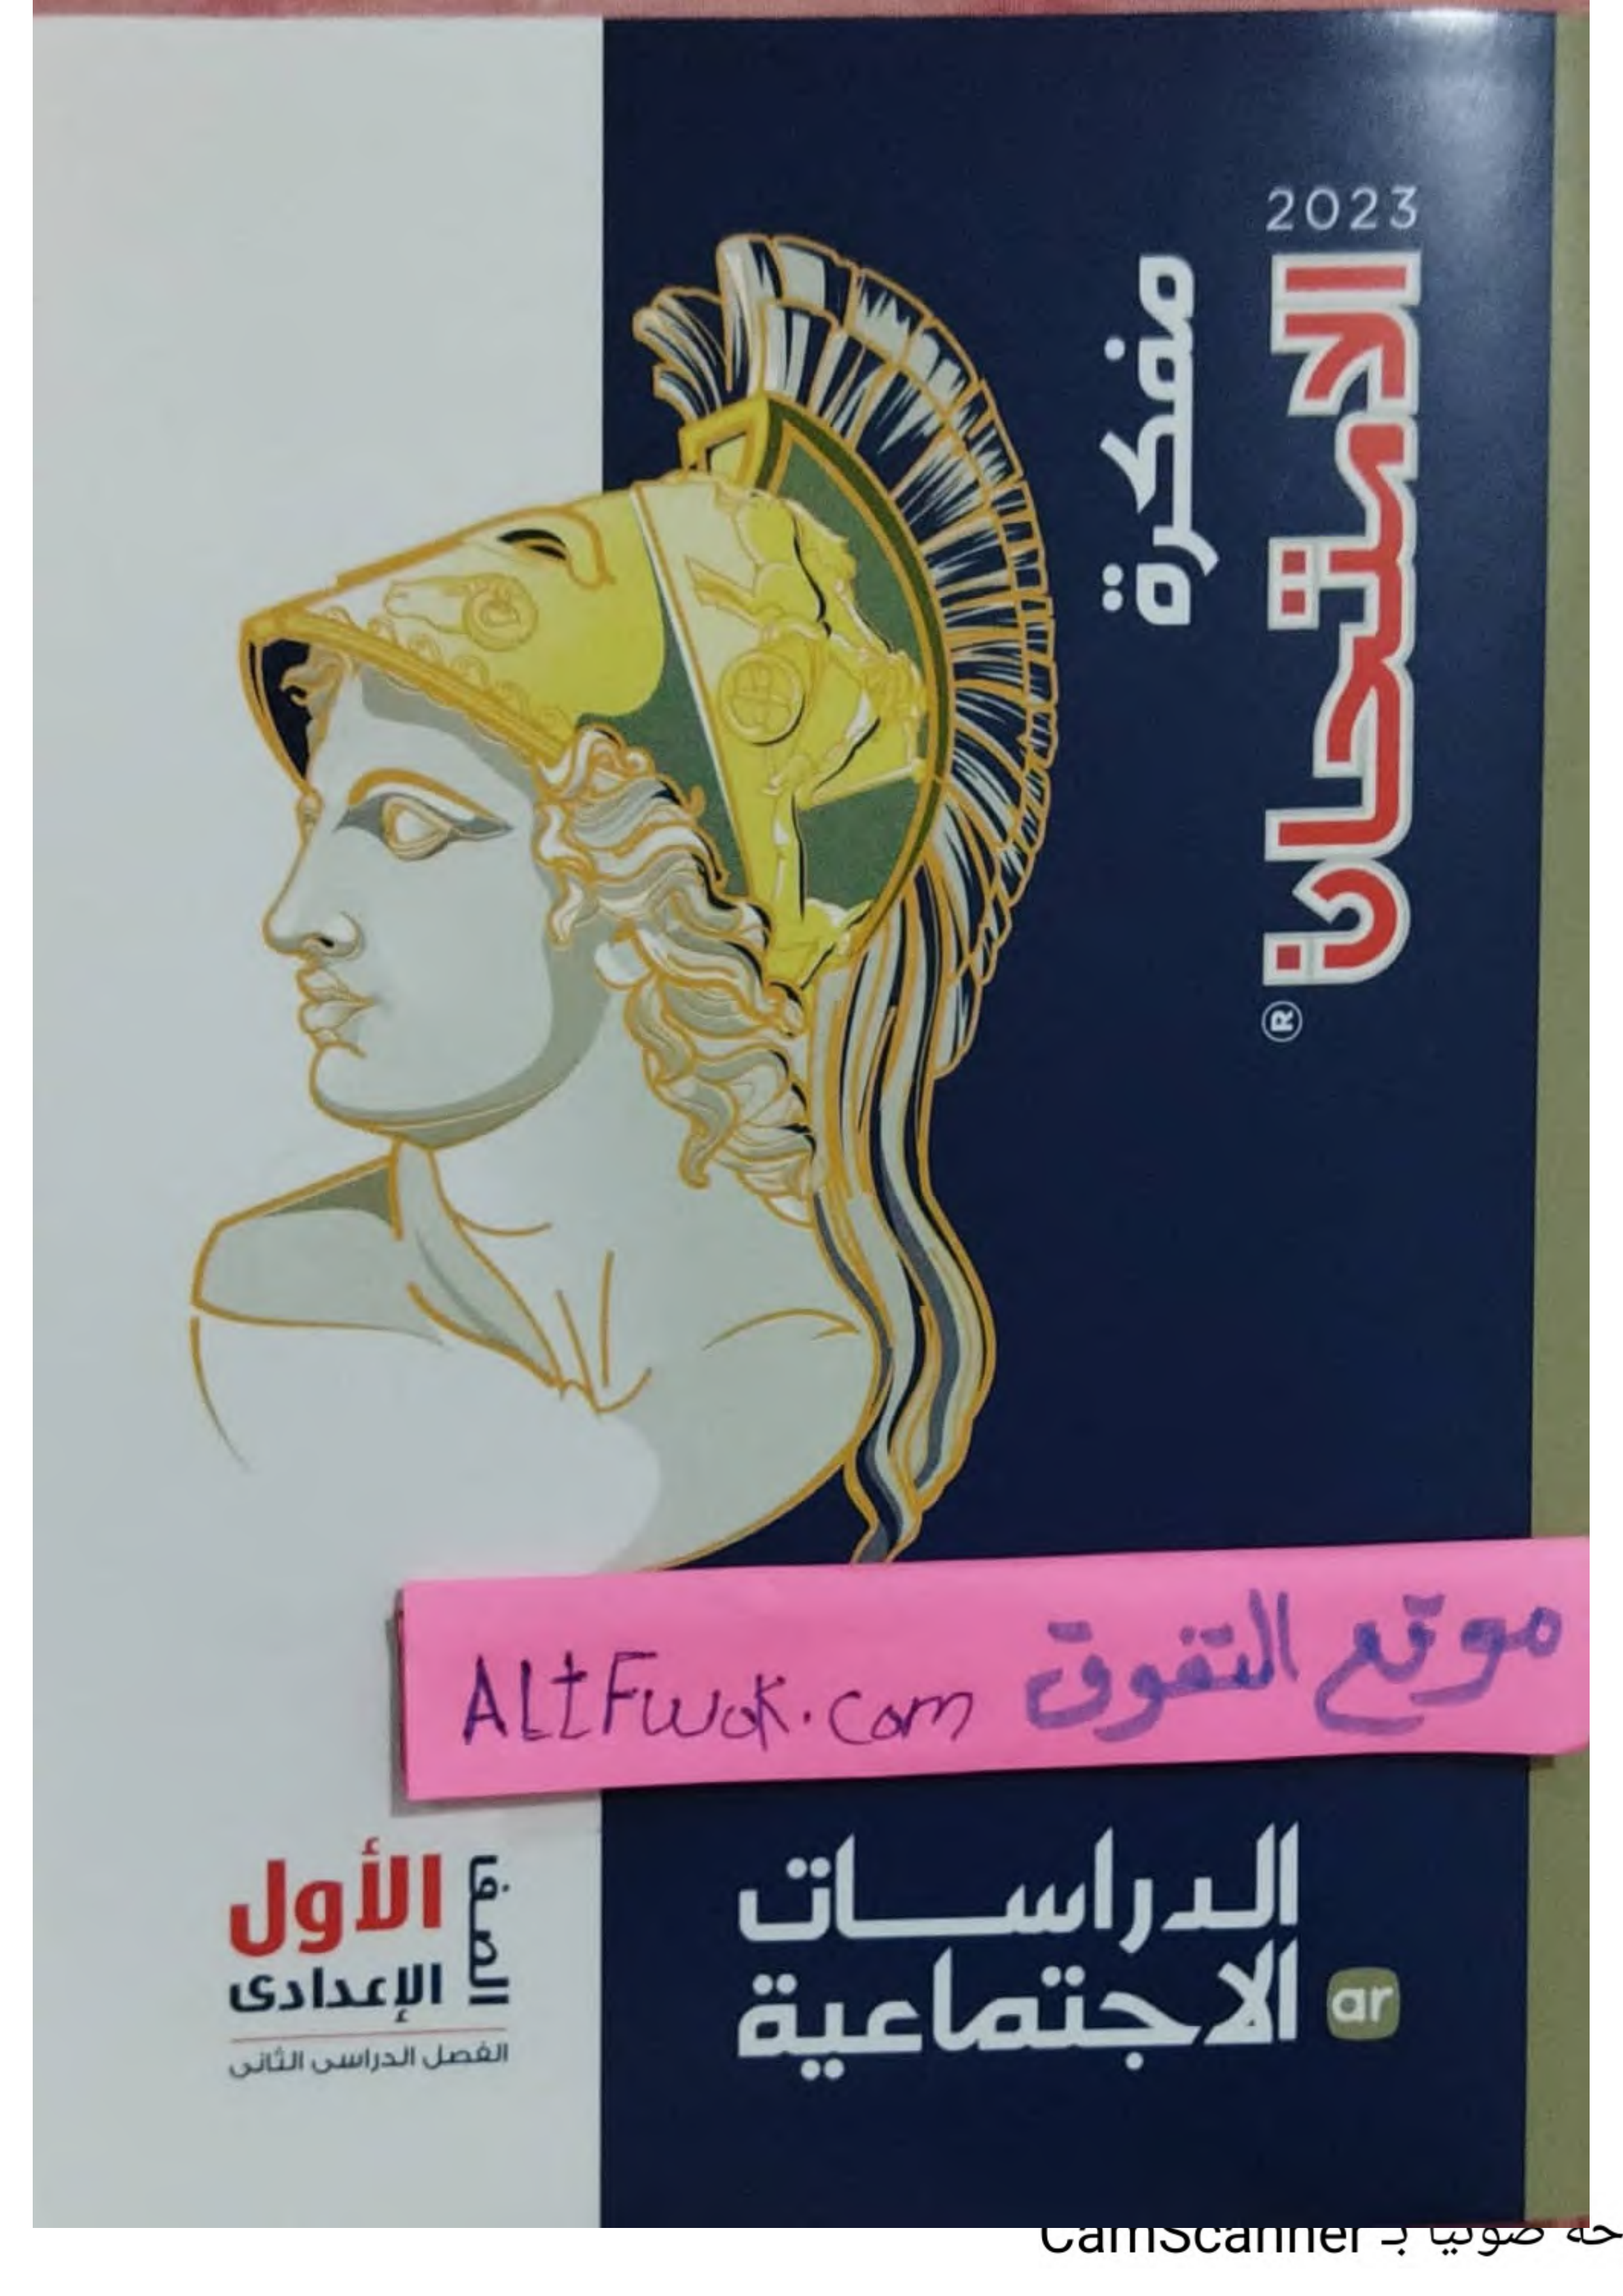 2023
الامتحان
®
مفكرة
موقع التفوق
ALtFwok.com
الدراسات
الاجتماعية
ar
الصف
الأول
الإعدادى
الفصل الدراسى الثانى
حة ضوئيا بـ CamScanner